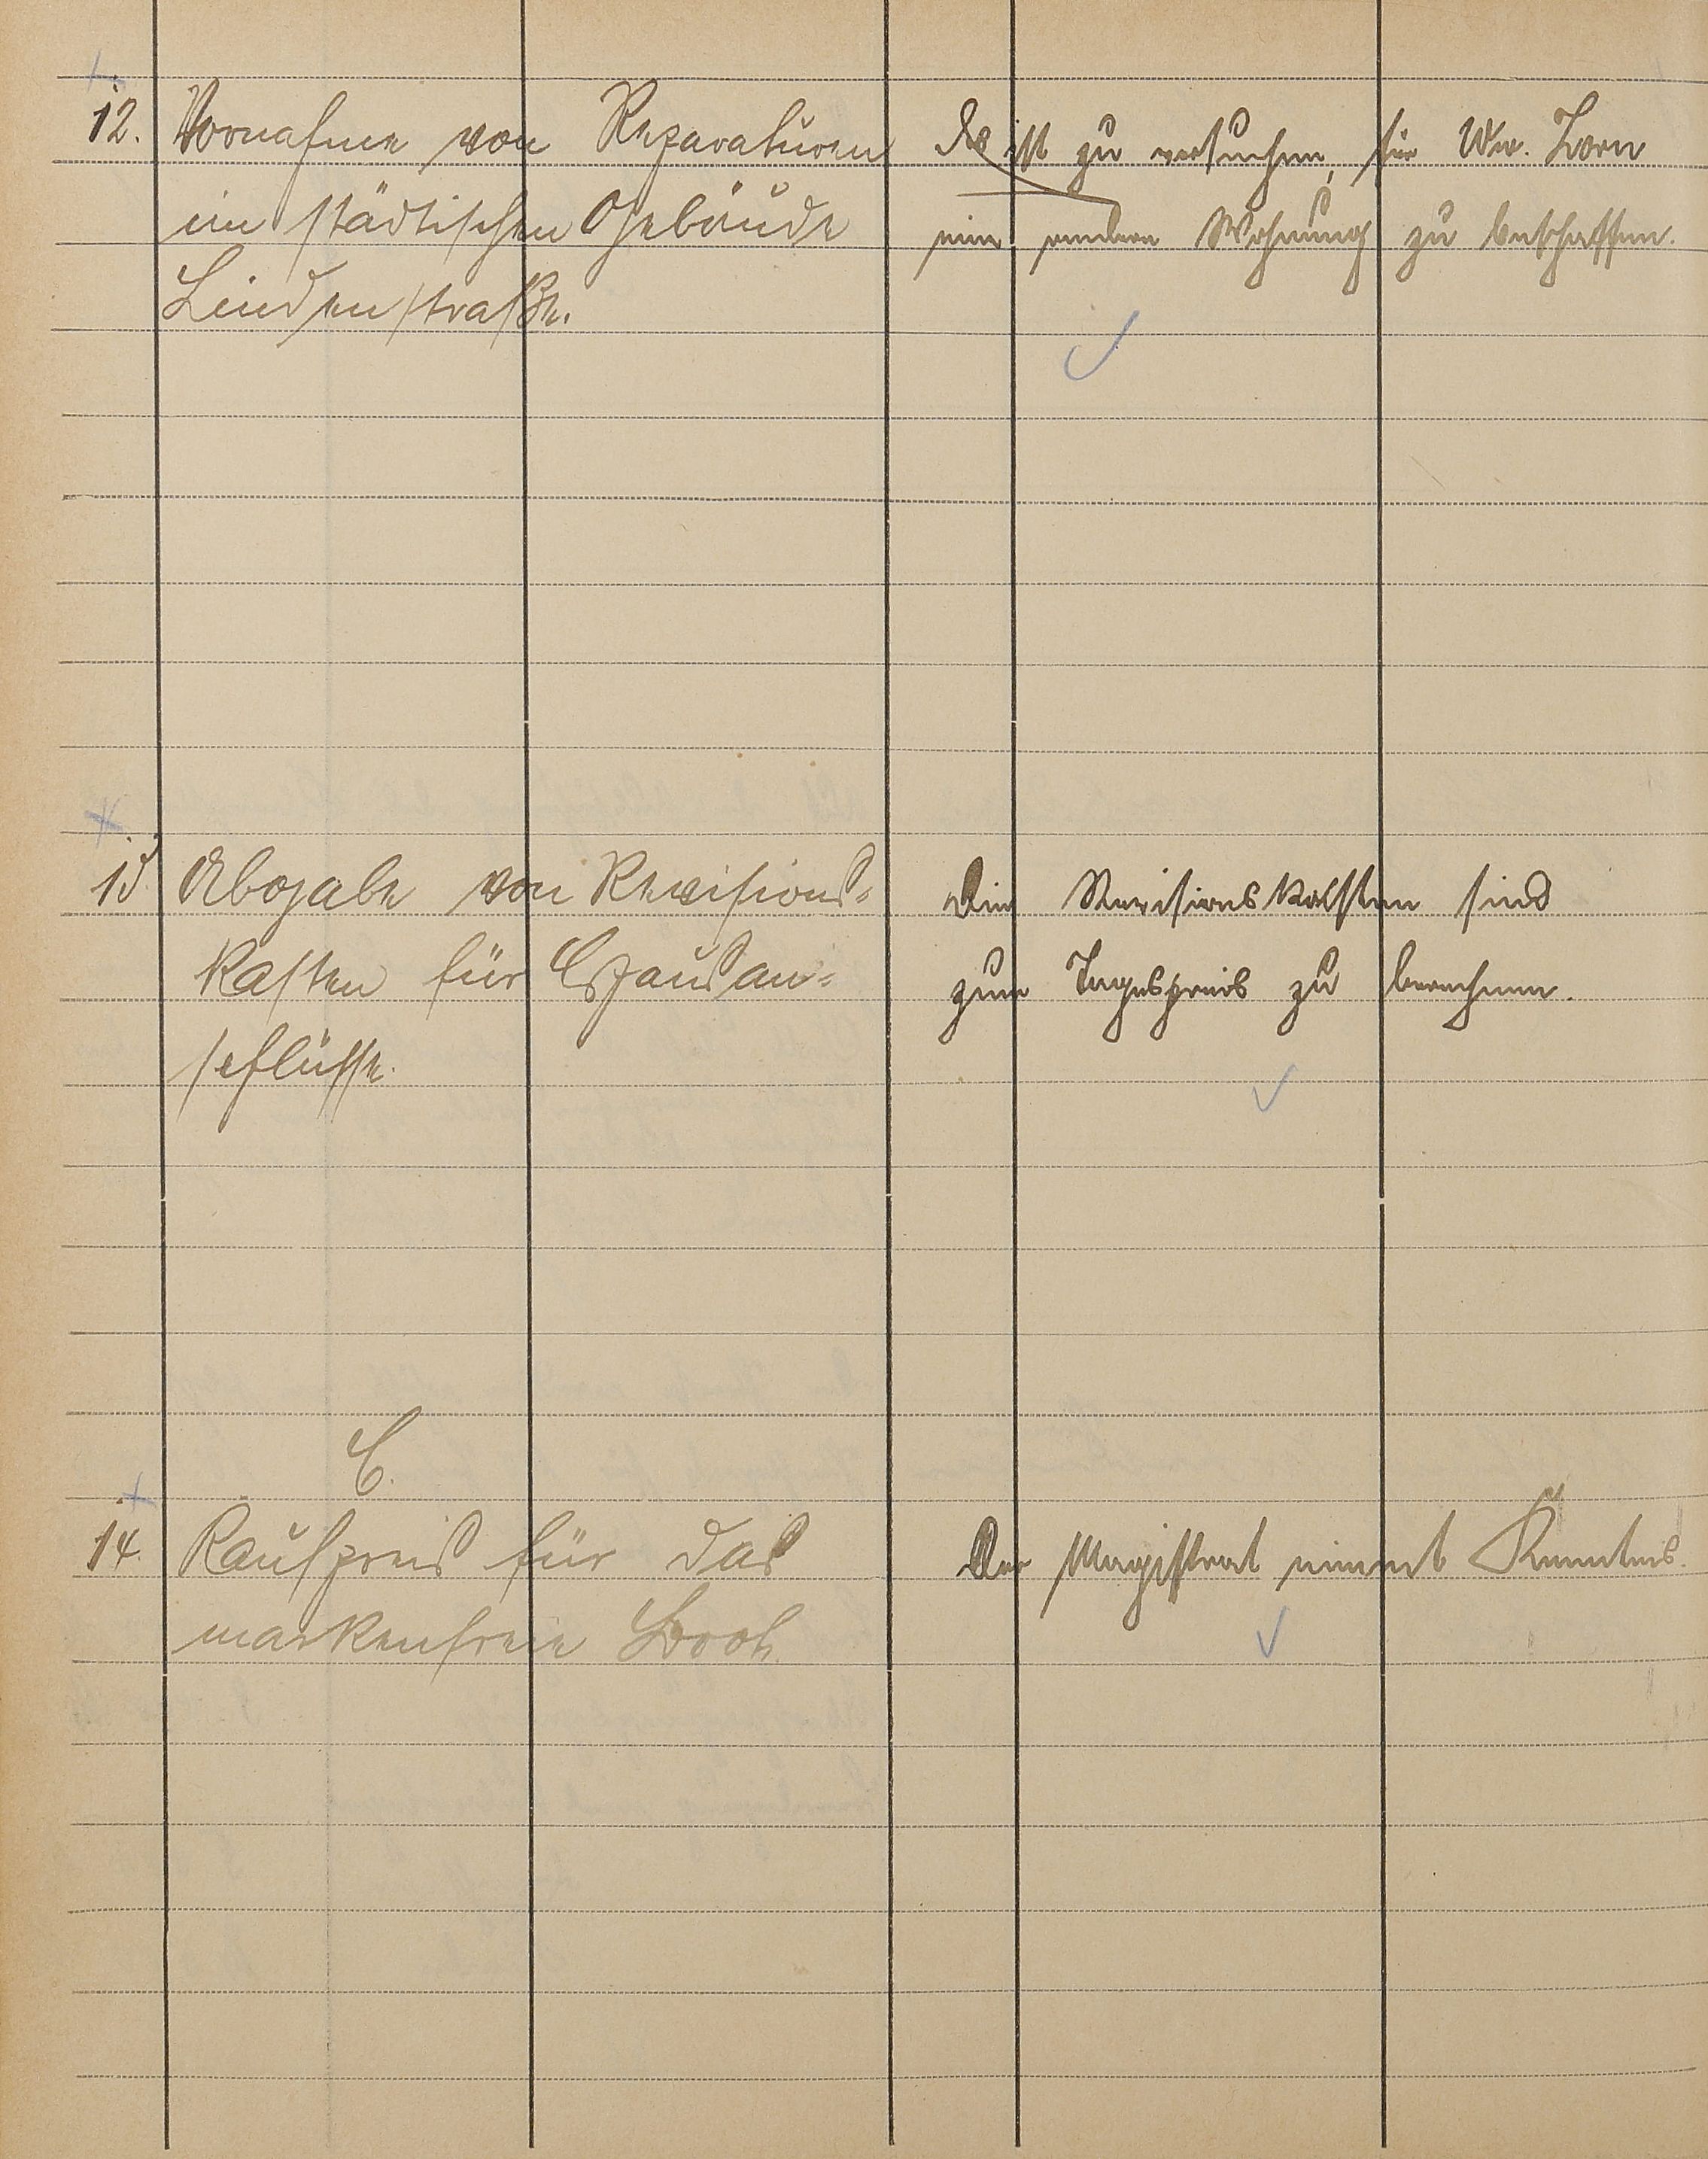 12. Vornahme von Reparaturen
im städtischen Gebäude
Lindenstraße.
Es ist zu versuchen, für Ww. Zorn
eine andere Wohnung zu beschaffen.
13 Abgabe von Revisions-
kasten für Hausan-
schlüsse.
Die Revisionskasten sind
zum Tagespreis zu berechnen.
C.
14. Kaufpreis für das
markenfreie Brot.
Der Magistrat nimmt Kenntnis.